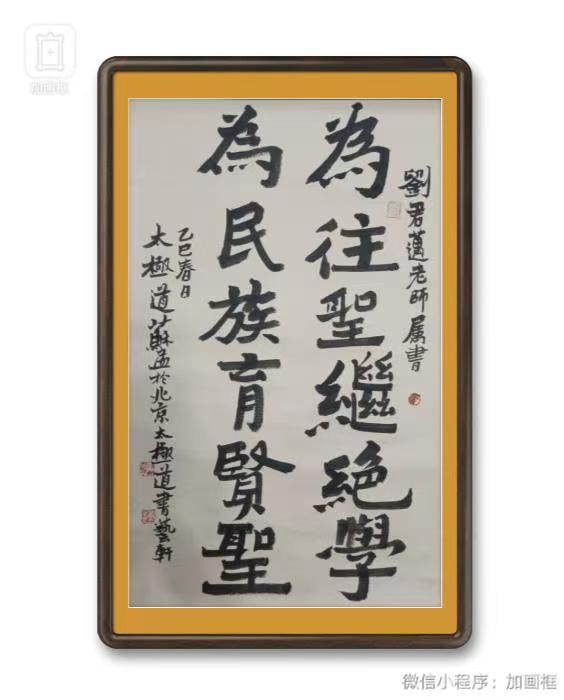 劉君邁老師属書
為往聖繼絕學
為民族育賢聖
乙巳春日
太極道蘇孟於北京太極道書藝軒
加画框
微信小程序：加画框